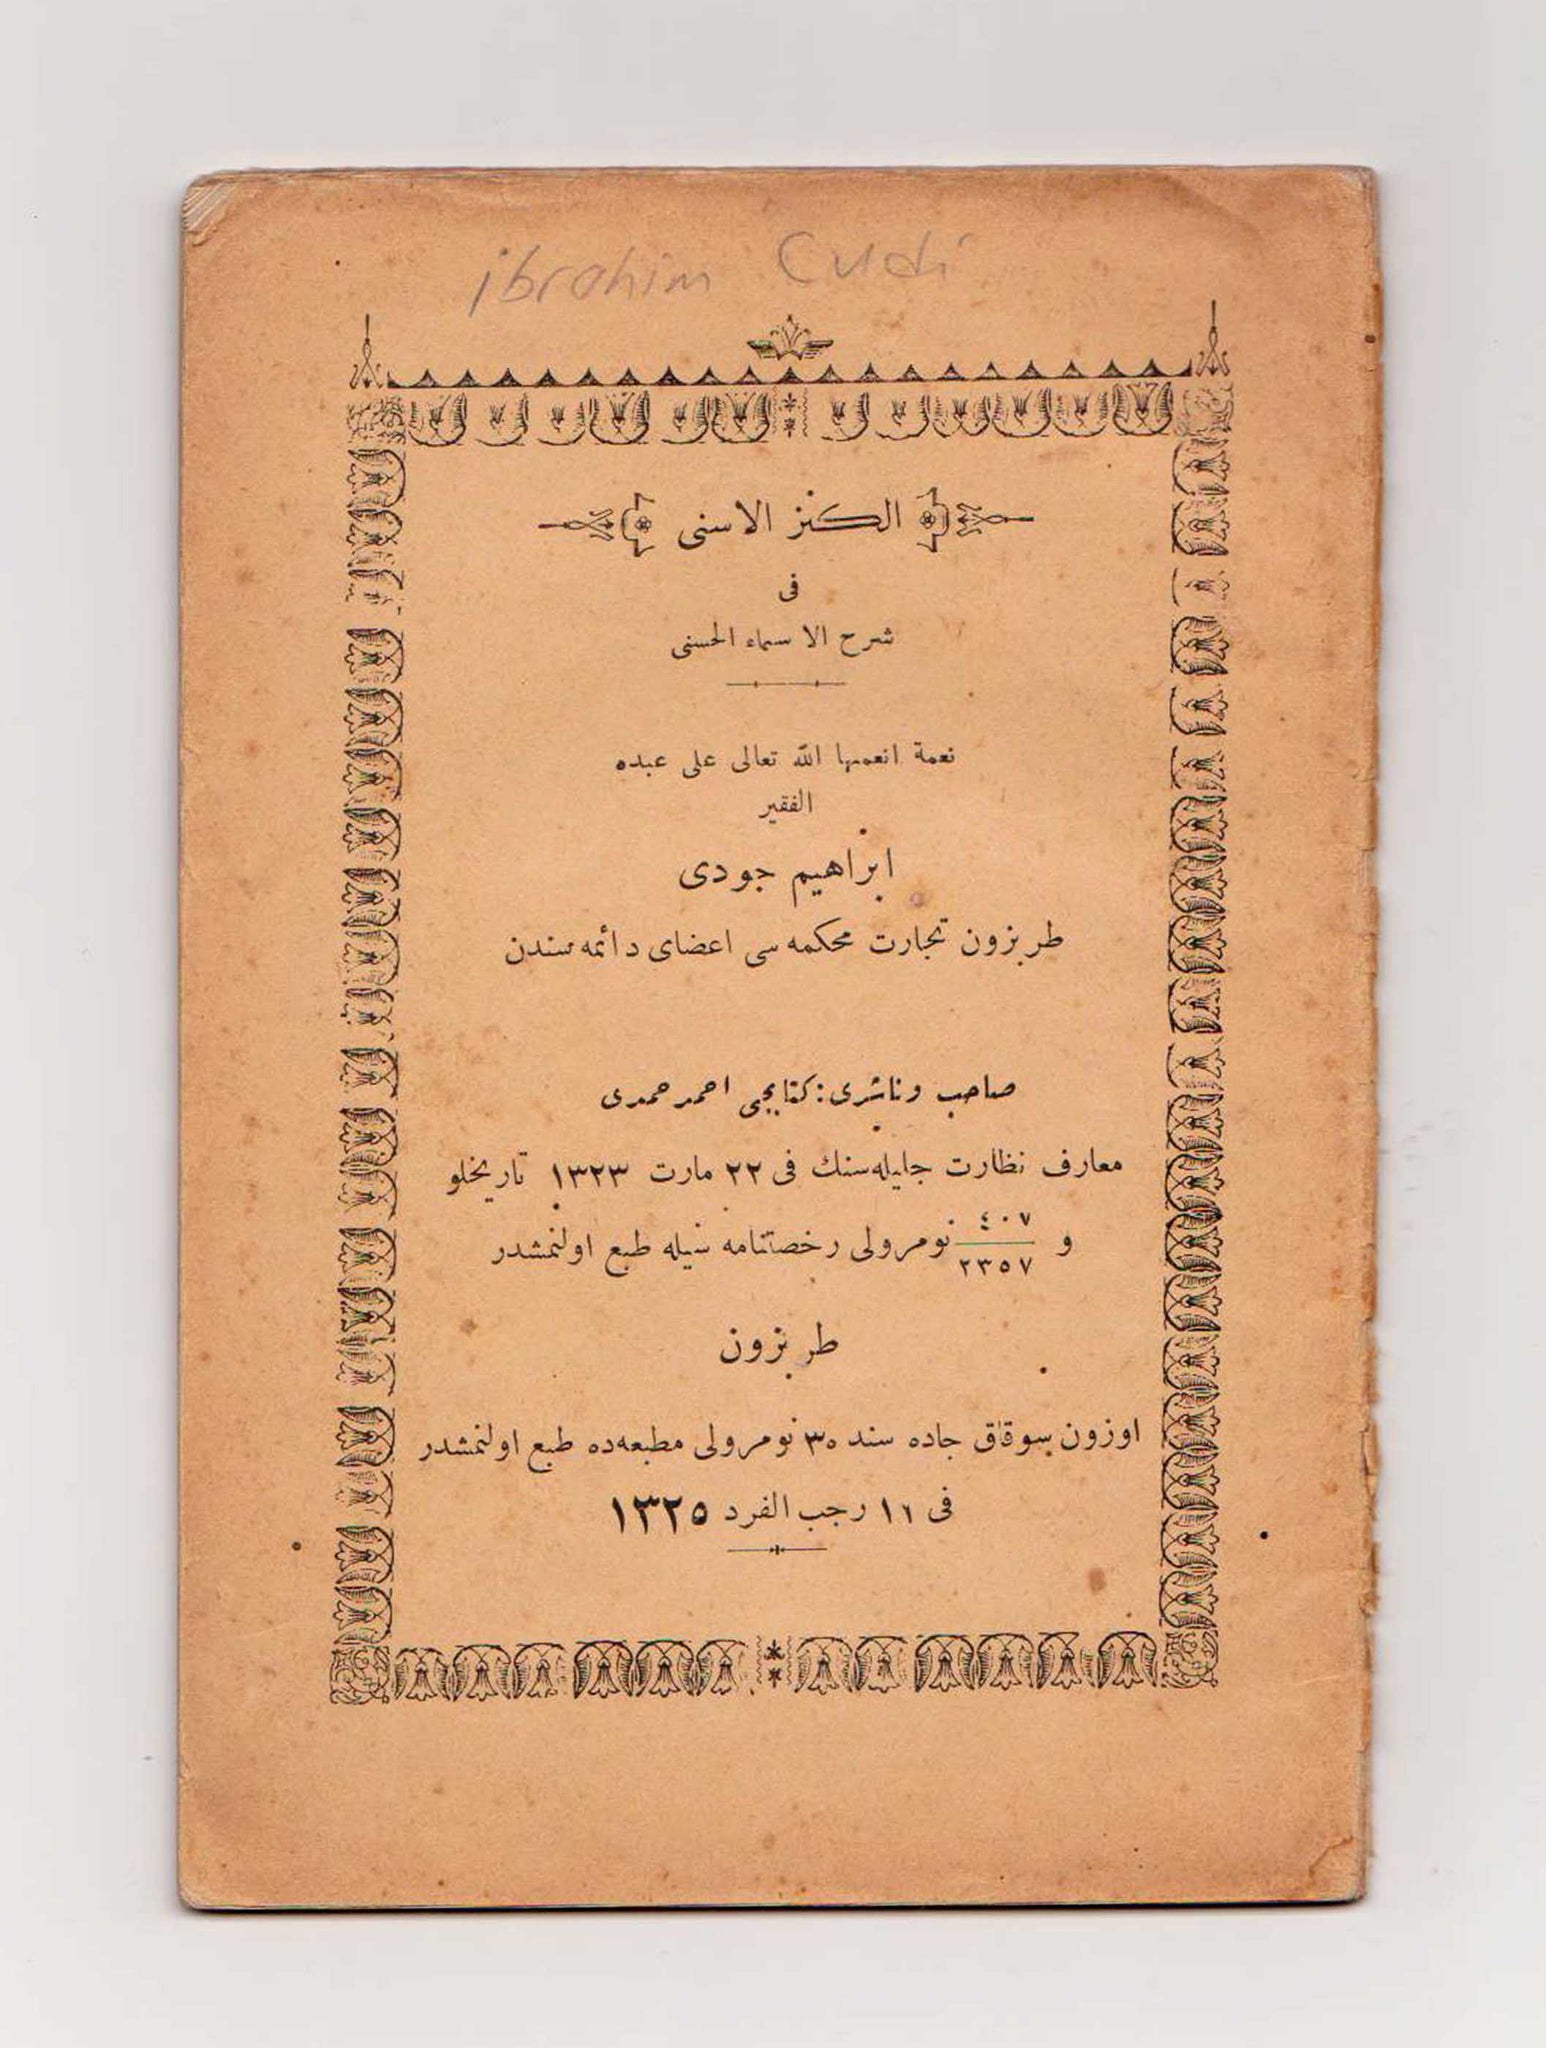 ibrahim Cudi
الكنز الاسنى
فى
شرح الاسماء الحسنى
نعمة انعمها الله تعالى على عبده
الفقير
ابراهيم جودى
طربزون تجارت محكمه سى اعضاى دائمه سندن
صاحب و ناشرى : كتابجى احمد حمدى
معارف نظارت جليله سنك فى ٢٢ مارت ١٣٢٣ تاريخلو
و ٤٠٧/٢٣٥٧ نومرولى رخصتنامه سيله طبع اولنمشدر
طربزون
اوزون سوقاق جاده سنده ٣٠ نومرولى مطبعه ده طبع اولنمشدر
فى ١٦ رجب الفرد ١٣٢٥